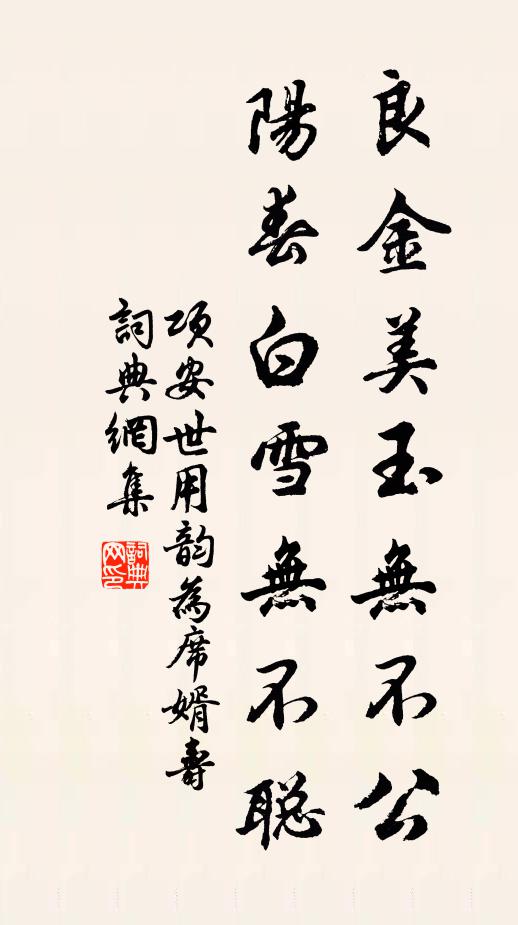 良金美玉無不公
陽春白雪無不聪
項安世用韵為席婿壽
詞典網集
詞典网印